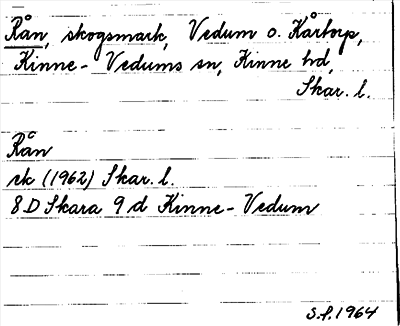 Rån, skogsmark, Vedum o. Kårtorp,
Kinne-Vedums sn, Kinne hd,
Skar. l.
Rån
ek (1962) Skar. l.
8D Skara 9d Kinne-Vedum
S.f. 1964